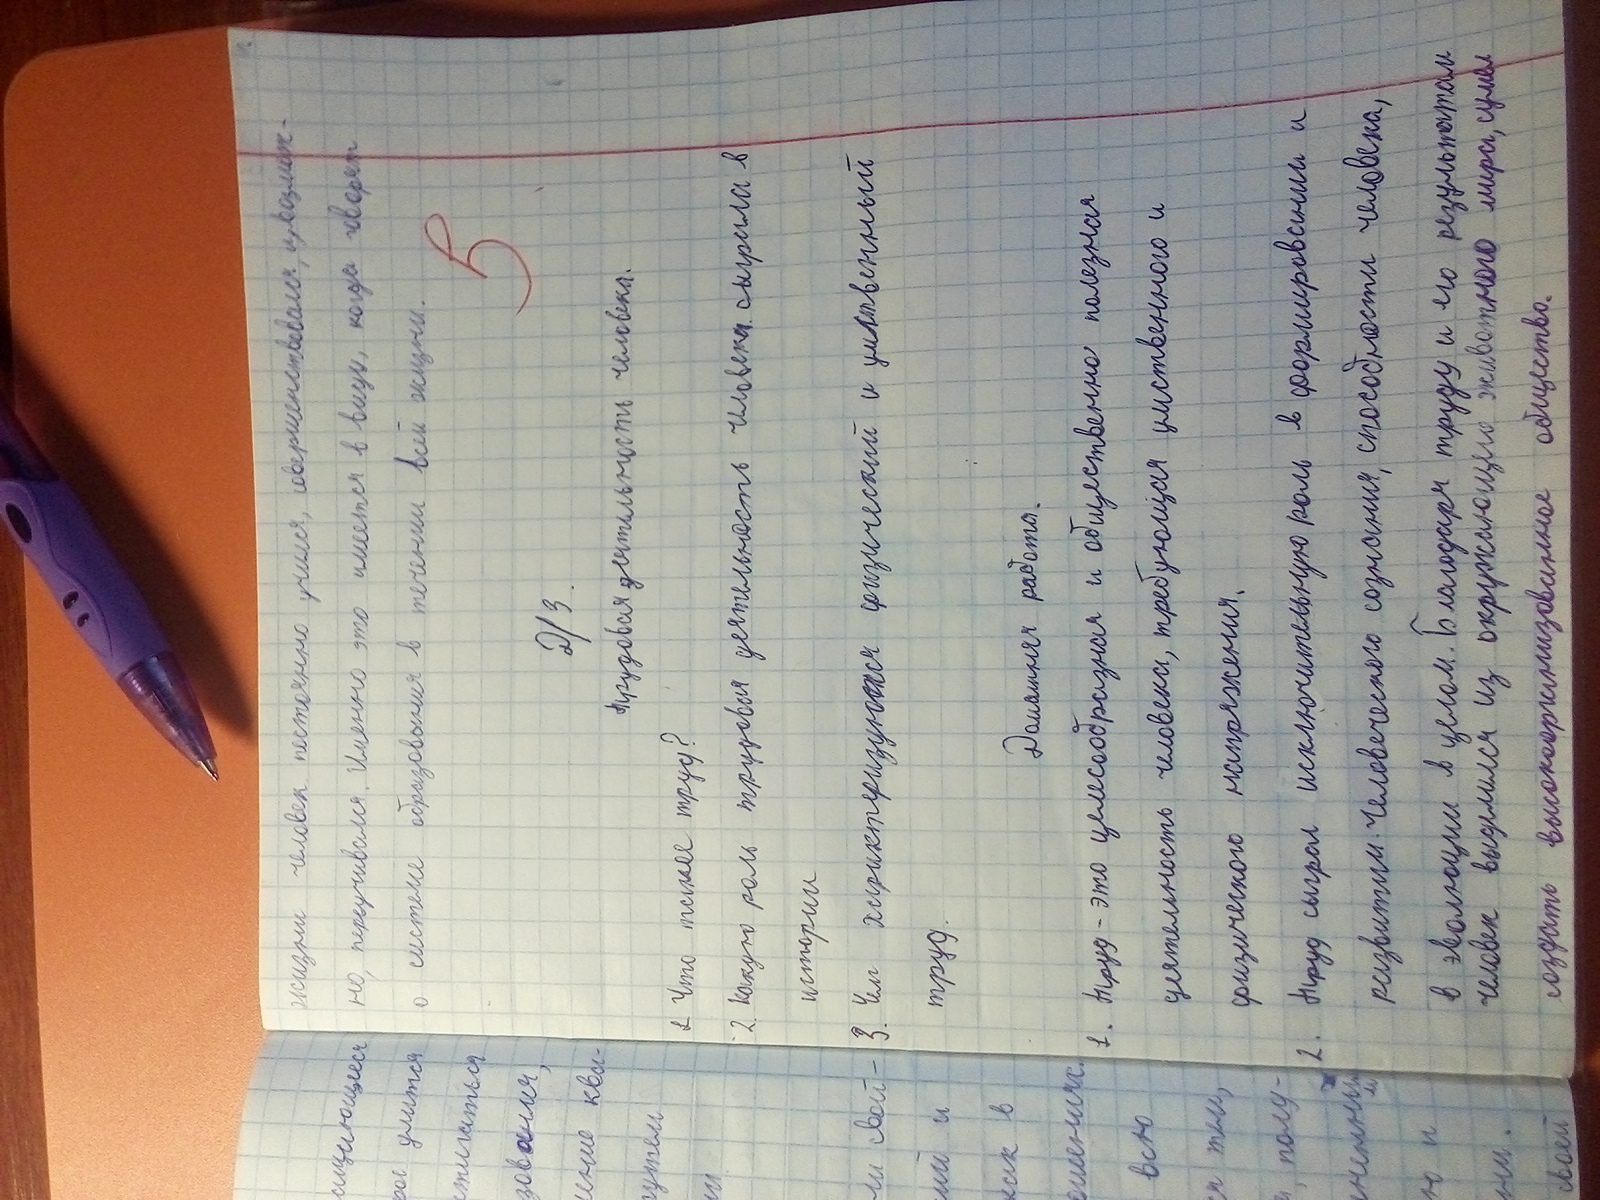 жизни человек постоянно учился, совершенствовался, и возмож-
но, переучивался. Именно это имеется в виду, когда говорят
о системе образования в течении всей жизни.
5
Д/З.
Трудовая деятельность человека.
1 Что такое труд?
2. Какую роль трудовая деятельность человека сыграла в
истории
3. Чем характеризуются физический и умственный
труд.
Домашняя работа.
1. Труд - это целесообразная и общественно полезная
деятельность человека, требующая умственного и
физического напряжения.
2. Труд сыграл исключительную роль в формировании и
развитии человеческого сознания, способности человека,
в эволюции в целом. Благодаря труду и его результатам
человек выделился из окружающего животного мира, сумел
создать высокоорганизованное общество.
сящиеся
учиться
ми свой-
ний и
как в
всю
полу-
но и
своей